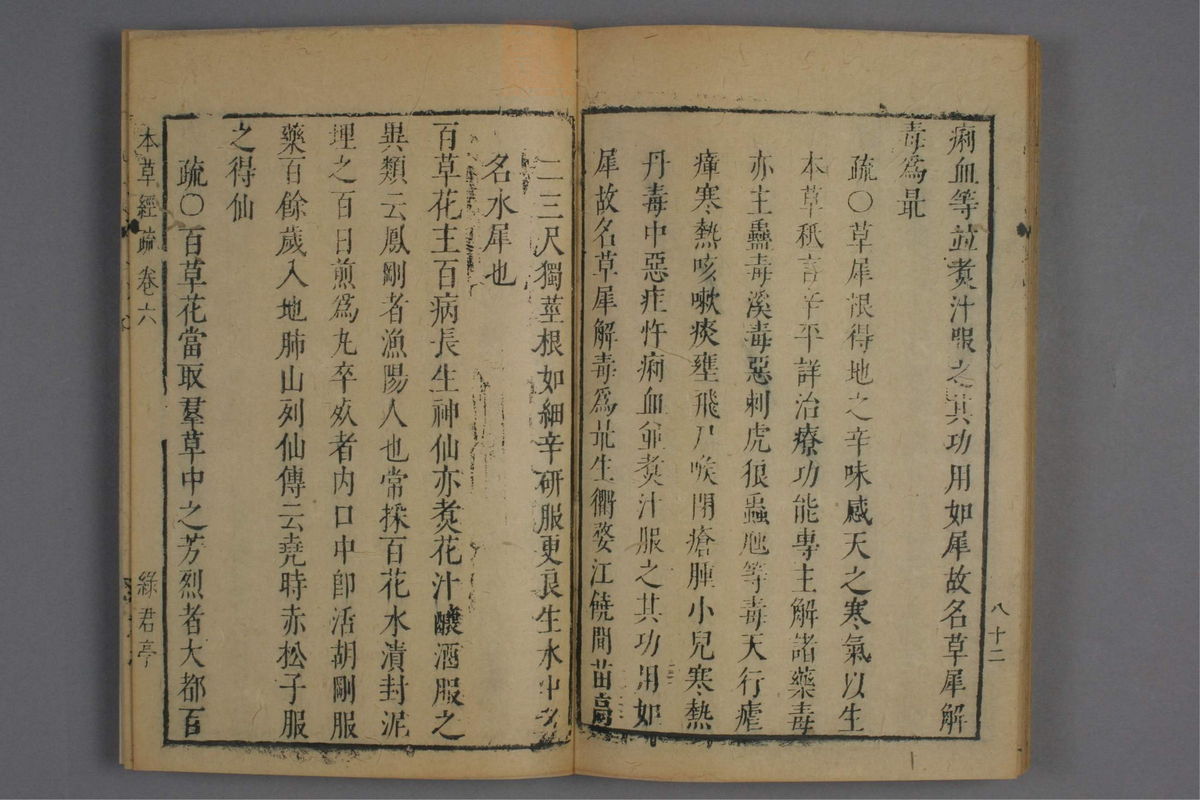 痢血等並煑汁服之其功用如犀故名草犀解
毒爲最
疏○草犀根得地之辛味感天之寒氣以生
本草秖言辛平詳治療功能專主解諸藥毒
亦主蠱毒溪毒惡刺虎狼蟲虺等毒天行瘧
瘴寒熱咳嗽痰壅飛尸喉閉瘡腫小兒寒熱
丹毒中惡疰忤痢血並煑汁服之其功用如
犀故名草犀解毒爲最生衢婺江饒間苗高
八十二
二三尺獨莖根如細辛研服更良生水中者
名水犀也
百草花主百病長生神仙亦煑花汁釀酒服之
異類云鳳剛者漁陽人也常採百花水漬封泥
埋之百日煎爲丸卒死者内口中卽活胡剛服
藥百餘歲入地肺山列仙傳云堯時赤松子服
之得仙
疏○百草花當取羣草中之芳烈者大都百
本草經疏 卷六 綠君亭